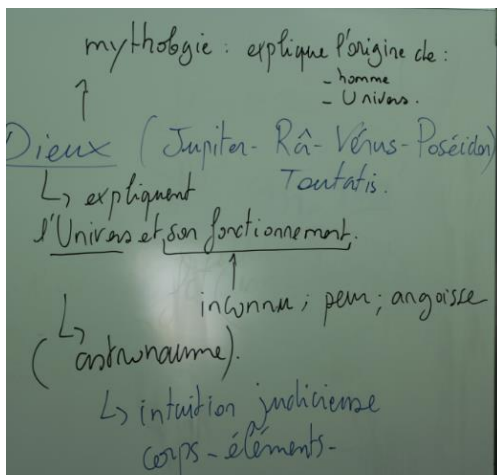 mythologie : explique l'origine de :
- homme
- Univers.
↑
Dieux (Jupiter - Râ - Vénus - Poséidon)
Toutatis.
↳ expliquent
l'Univers et son fonctionnement.
↑
inconnu ; peur ; angoisse
↳
(astronaume).
↳ intuition judicieuse
corps - éléments -